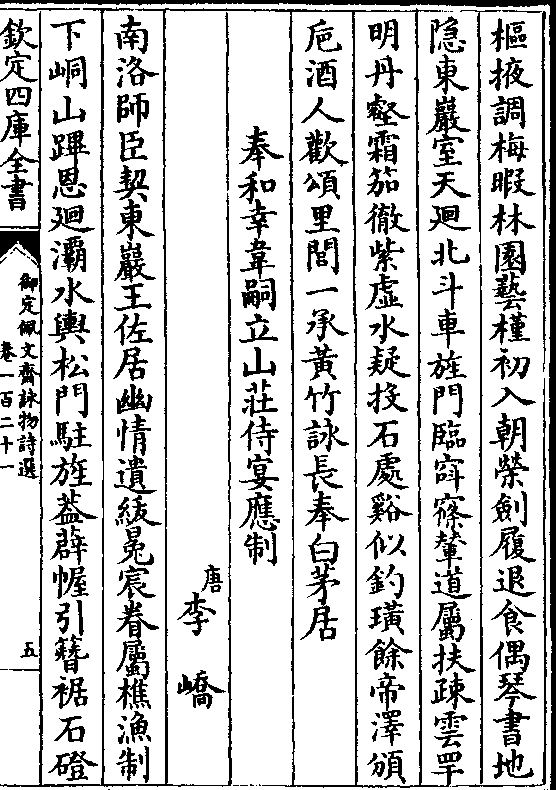 樞掖調梅暇林園藝槿初入朝榮劍履退食偶琴書地
隐東巖室天廻北斗車旌門臨窅窱輦道屬扶疎雲罕
明丹壑霜笳徹紫虛水疑投石處谿似釣璜餘帝澤頒
巵酒人歡頌里閭一承黃竹詠長奉白茅居
奉和幸韋嗣立山莊侍宴應制
唐
李嶠
南洛師臣契東巖王佐居幽情遺紱冕宸眷屬樵漁制
下峒山蹕恩廻灞水輿松門駐旌葢薜幄引簪裾石磴
欽定四庫全書
御定佩文齋詠物詩選
卷一百二十一
五